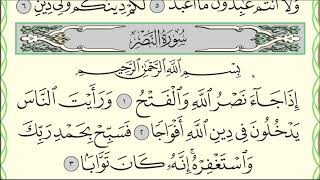 وَلَا أَنتُمْ عَٰبِدُونَ مَا أَعْبُدُ ٥ لَكُمْ دِينُكُمْ وَلِىَ دِينِ ٦
سُورَةُ النَّصْرِ
بِسْمِ اللَّهِ الرَّحْمَٰنِ الرَّحِيمِ
إِذَا جَآءَ نَصْرُ اللَّهِ وَالْفَتْحُ ١ وَرَأَيْتَ النَّاسَ
يَدْخُلُونَ فِى دِينِ اللَّهِ أَفْوَاجًا ٢ فَسَبِّحْ بِحَمْدِ رَبِّكَ
وَاسْتَغْفِرْهُ إِنَّهُۥ كَانَ تَوَّابًۢا ٣